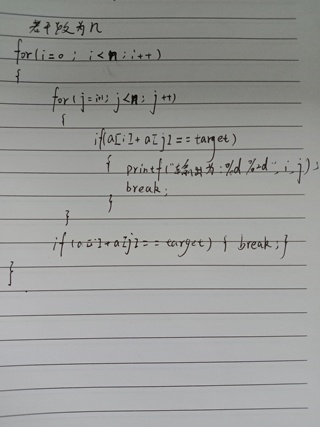 若干数为n
for(i=0; i<n; i++)
{
for(j=i+1; j<n; j++)
{
if(a[i]+a[j]==target)
{ printf("输出为:%d %d", i, j);
break;
}
}
if(a[i]+a[j]==target) { break; }
}